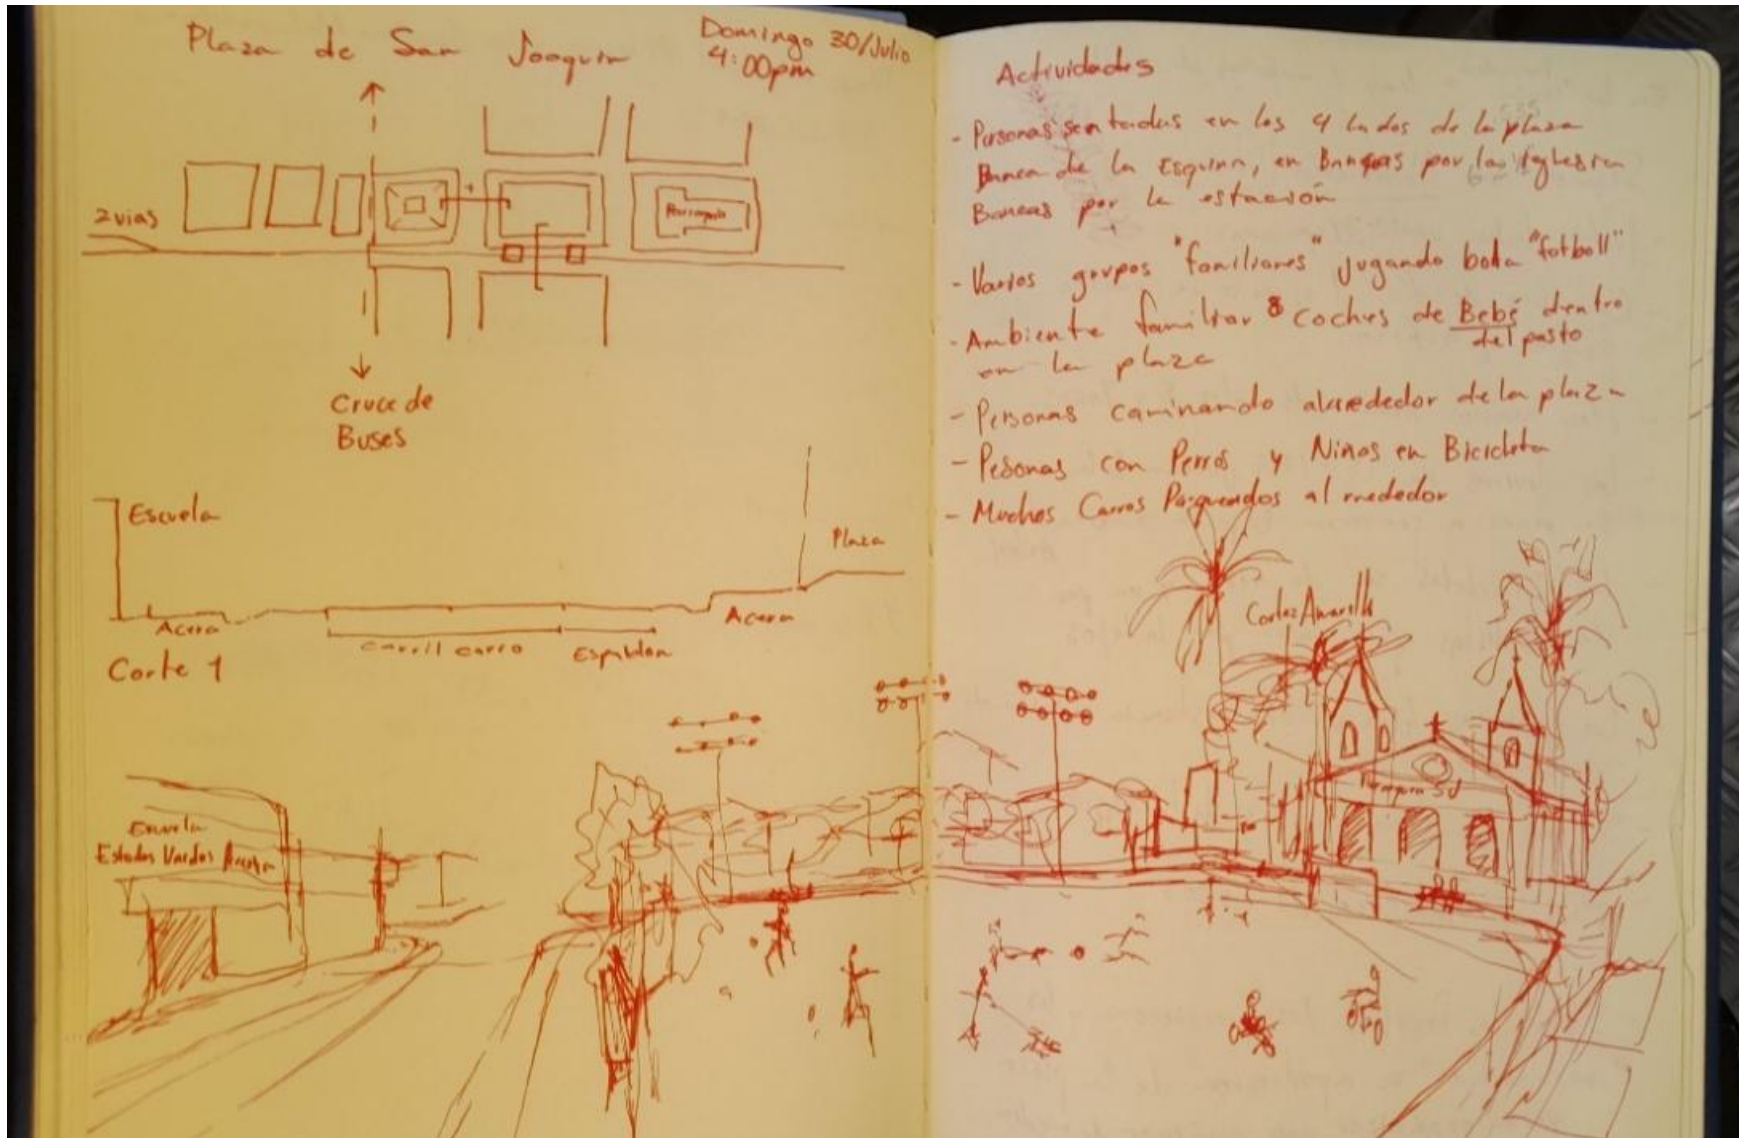 Plaza de San Joaquin
Domingo 30/Julio
4:00pm
2 vias
Parroquia
Cruce de
Buses
Escuela
Plaza
Acera
Acera
carril carro
Espaldon
Corte 1
Escuela
Estados Unidos
Actividades
- Personas sentadas en los 4 lados de la plaza
Banca de la Esquina, en Bancas por la Iglesia
Bancas por la estación
- Varios grupos "familiares" jugando bola "fotboll"
- Ambiente familiar 8 coches de Bebé dentro
del pasto
en la plaza
- Personas caminando alrededor de la plaza
- Pesonas con Perros y Niños en Bicicleta
- Muchos Carros Parqueados al rededor
Cortez Amarillo
Parroquia SJ